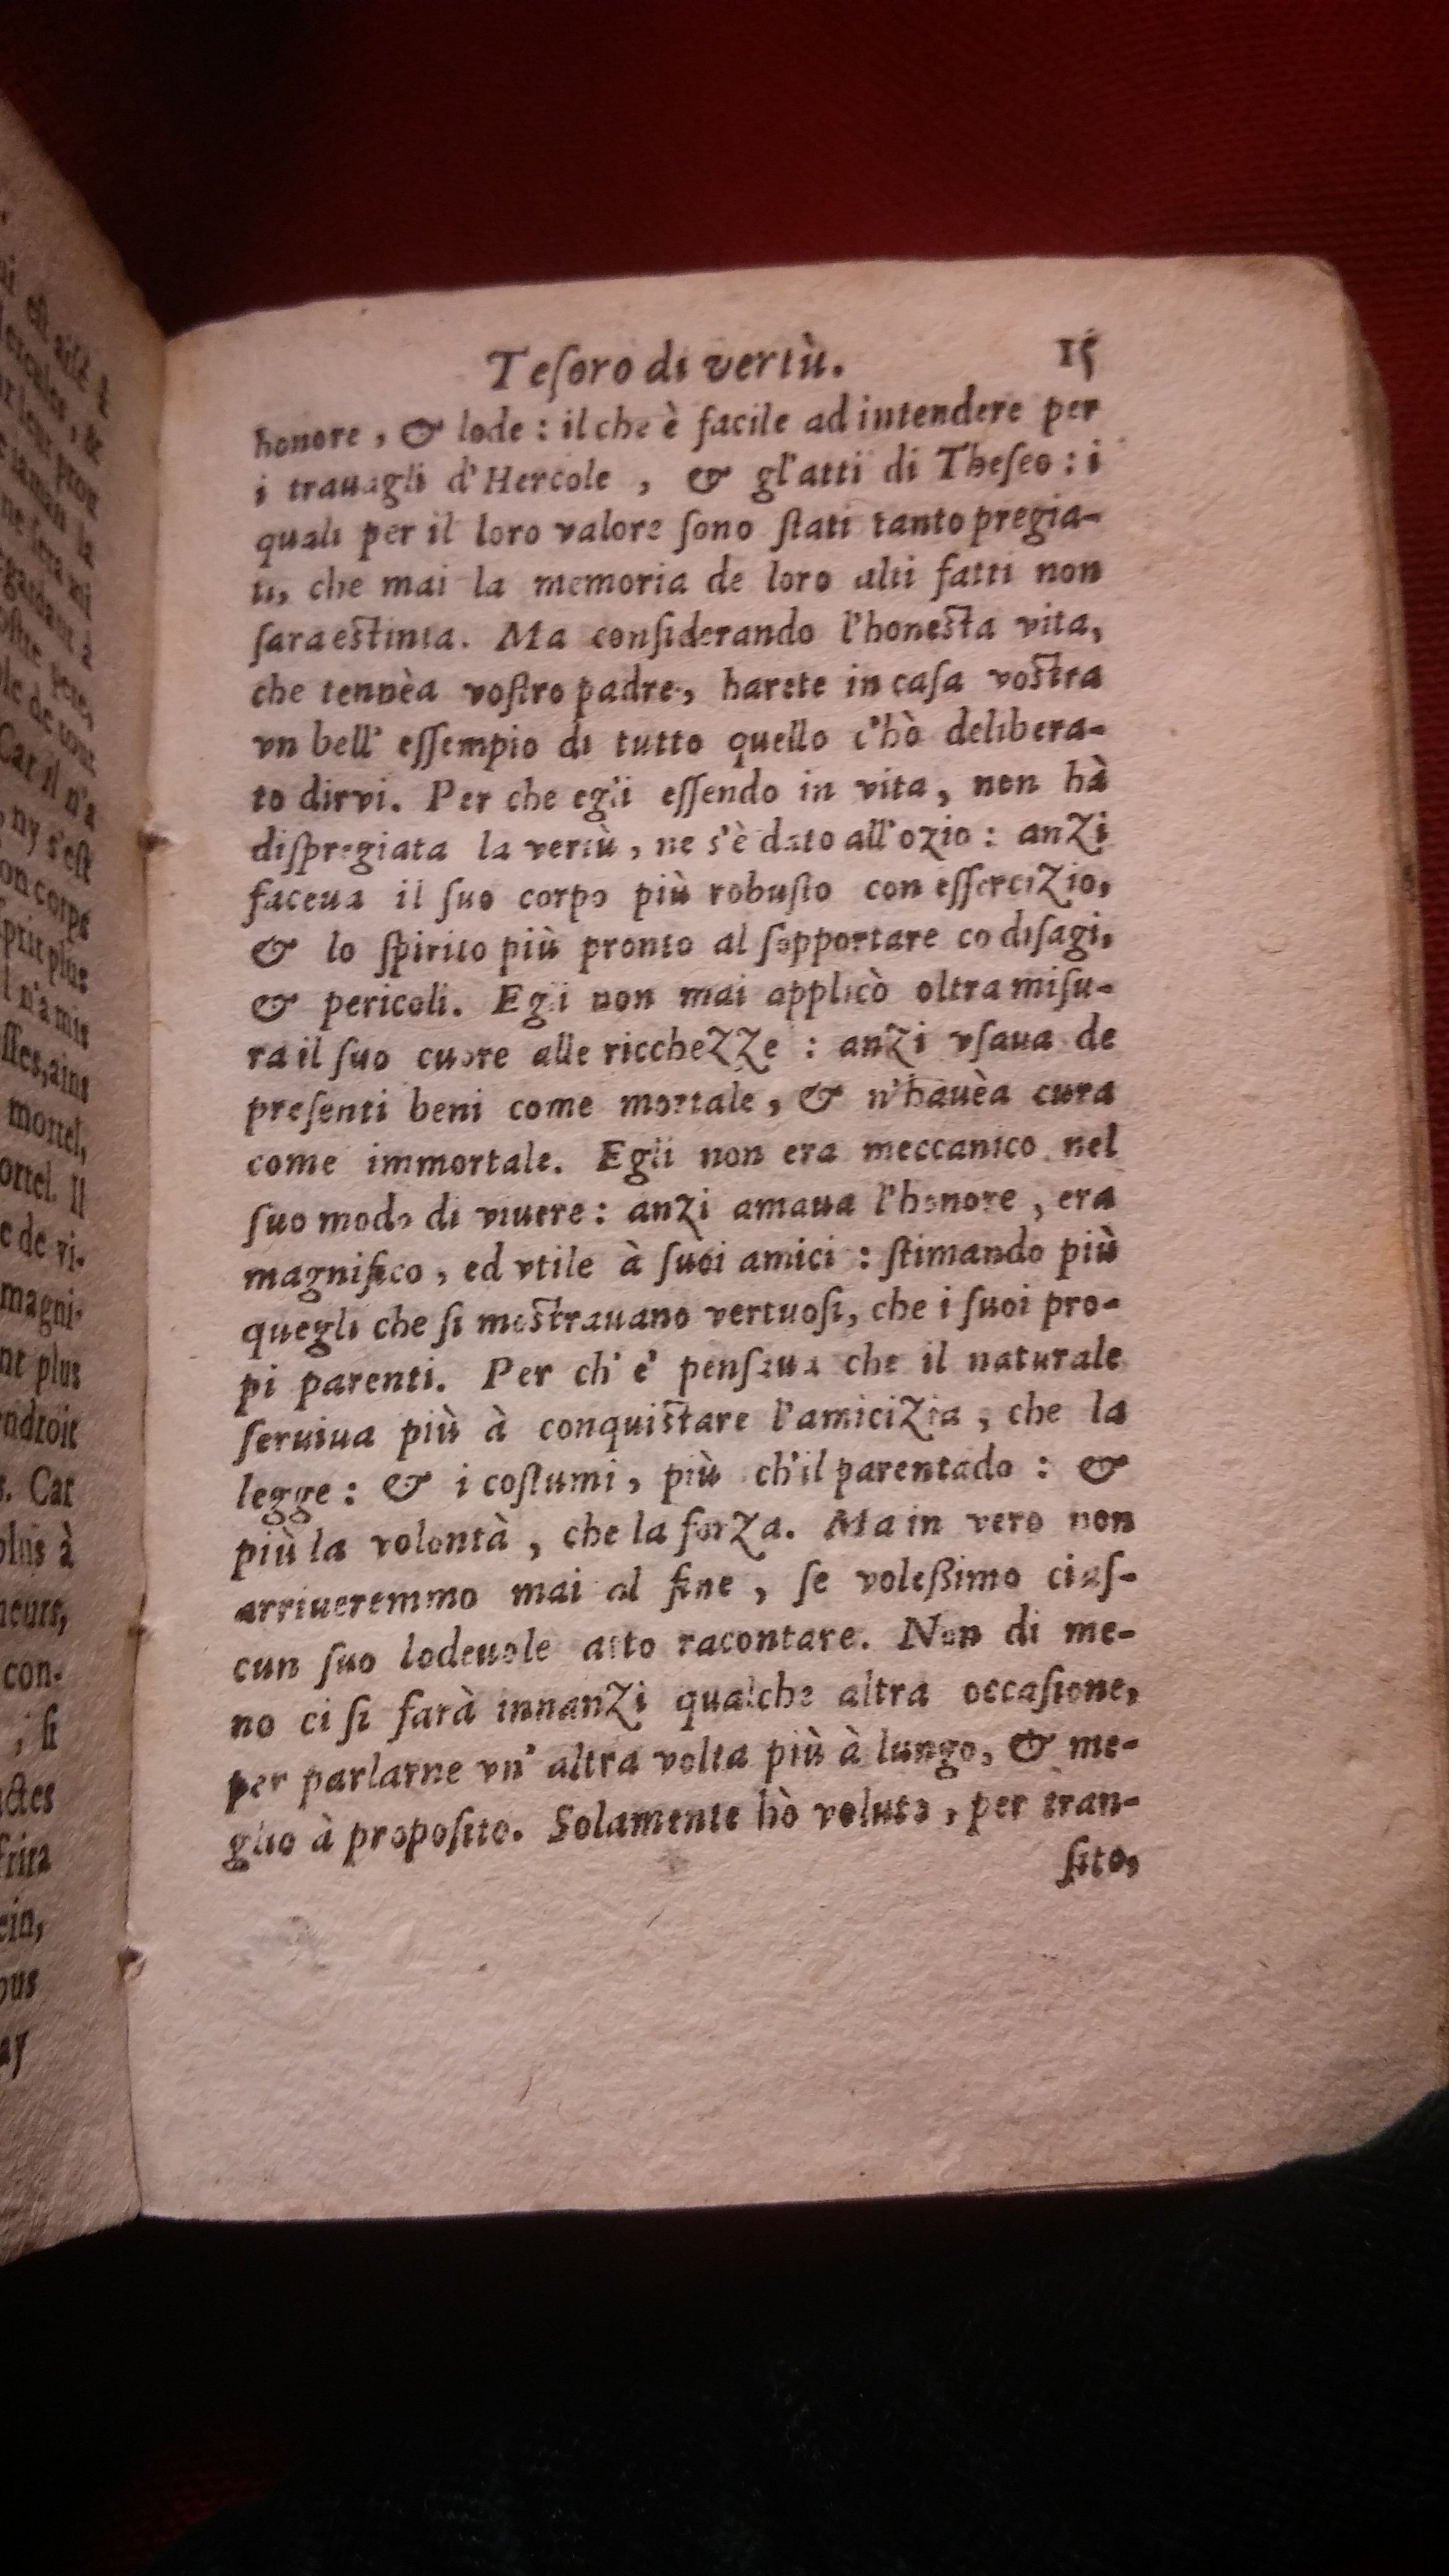 Teſoro di vertù. 15
honore, & lode : il che è facile ad intendere per
i trauagli d'Hercole, & gl'atti di Theſeo : i
quali per il loro valore ſono ſtati tanto pregia-
ti, che mai la memoria de loro alti fatti non
ſara estinta. Ma conſiderando l'honesta vita,
che tennèa voſtro padre, harete in caſa vostra
vn bell' eſſempio di tutto quello c'hò delibera-
to dirvi. Per che egli eſſendo in vita, non hà
diſpregiata la vertù, ne s'è dato all'ozio : anzi
faceua il ſuo corpo più robuſto con eſſercizio,
& lo ſpirito più pronto al ſopportare co diſagi,
& pericoli. Egli non mai applicò oltra miſu-
ra il ſuo cuore alle ricchezze : anzi vſaua de
preſenti beni come mortale, & n'hauèa cura
come immortale. Egli non era meccanico nel
ſuo modo di viuere : anzi amaua l'honore, era
magnifico, ed vtile à ſuoi amici : ſtimando più
quegli che ſi mostrauano vertuoſi, che i ſuoi pro-
pi parenti. Per ch' e' penſaua che il naturale
ſeruiua più à conquistare l'amicizia, che la
legge : & i coſtumi, più ch'il parentado : &
più la volontà, che la forza. Ma in vero non
arriueremmo mai al fine, ſe voleßimo ciaſ-
cun ſuo lodeuole atto racontare. Non di me-
no ci ſi farà innanzi qualche altra occaſione,
per parlarne vn' altra volta più à lungo, & me-
glio à propoſito. Solamente hò voluto, per tran-
ſito,
ny s'eſt
on corps
l n'a mis
mortel,
e de vi-
magni-
plus
. Car
plus à
con-
, ſi